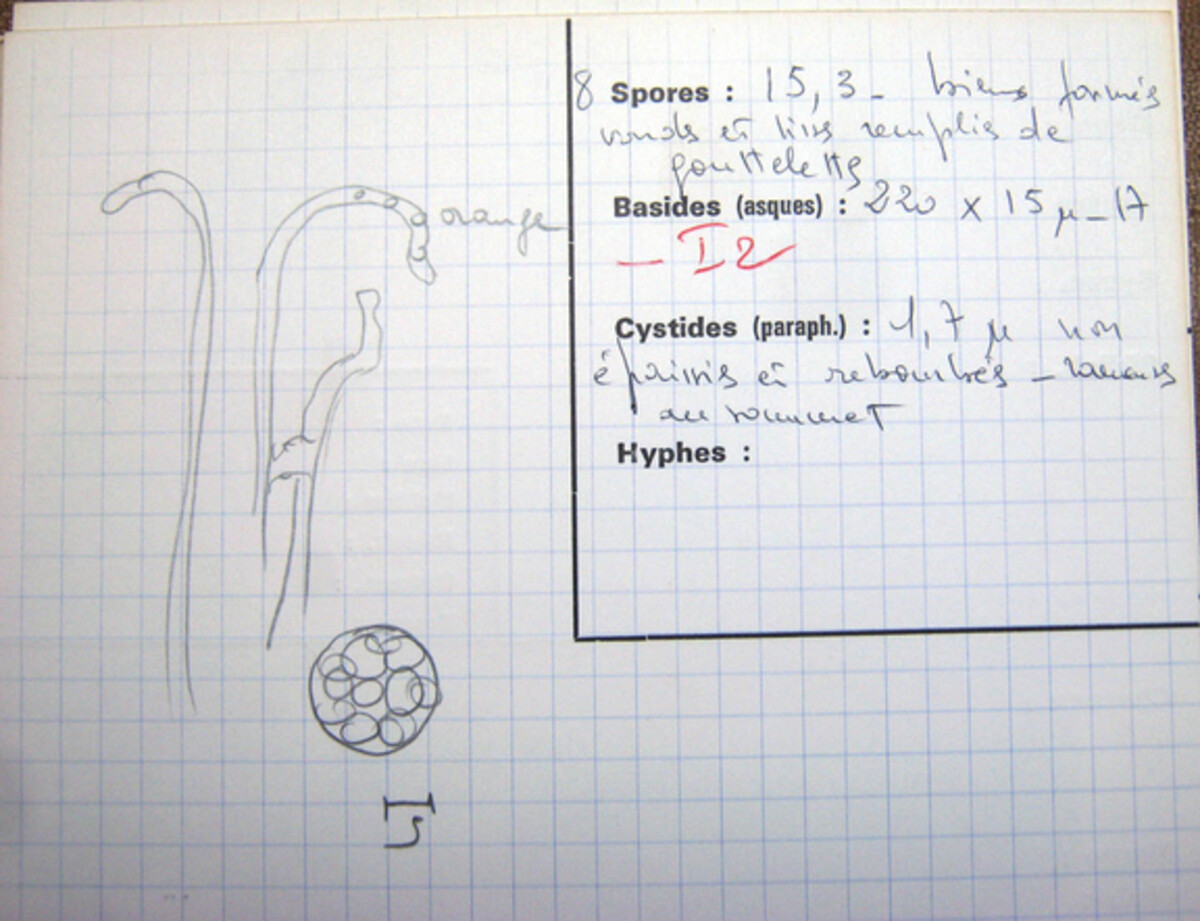 8 Spores : 15,3 - biens formés
ronds et liss remplis de
gouttelettes
orange
Basides (asques) : 220 x 15 µ - 17
- I 2
Cystides (paraph.) : 1,7 µ non
épaissis et rebombés -
au sommet
Hyphes :